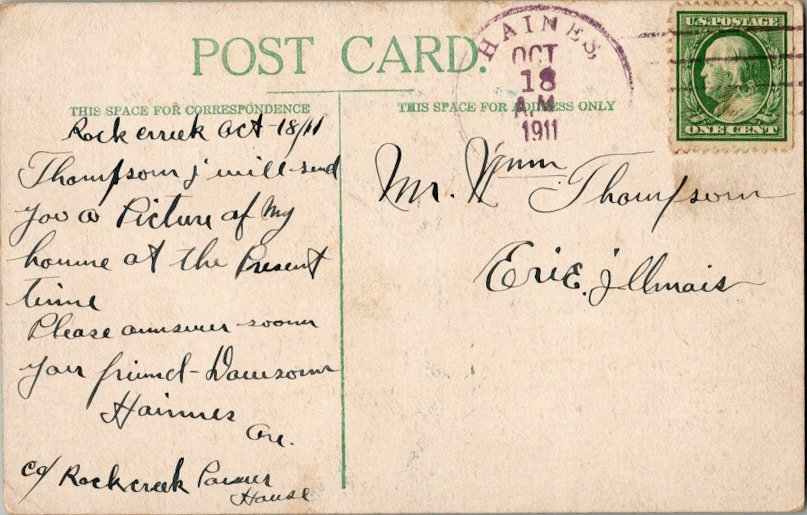 POST CARD.
THIS SPACE FOR CORRESPONDENCE
THIS SPACE FOR ADDRESS ONLY
HAINES,
OCT
18
A.M.
1911
U.S. POSTAGE
ONE CENT
Rock crreek Oct-18/11
Thompson j will send
you a Picture of My
houme at the Present
time
Please aunswer soon
your friend - Dawson
Hainnes
Ore.
c/o Rock creek Power
House
Mr. Wynn Thompson
Erie. jllinais